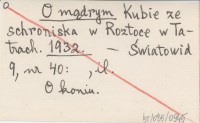 O mądrym Kubie ze
schroniska w Roztoce w Ta-
trach. 1932. — Światowid
9, nr 40: , il.
O koniu.